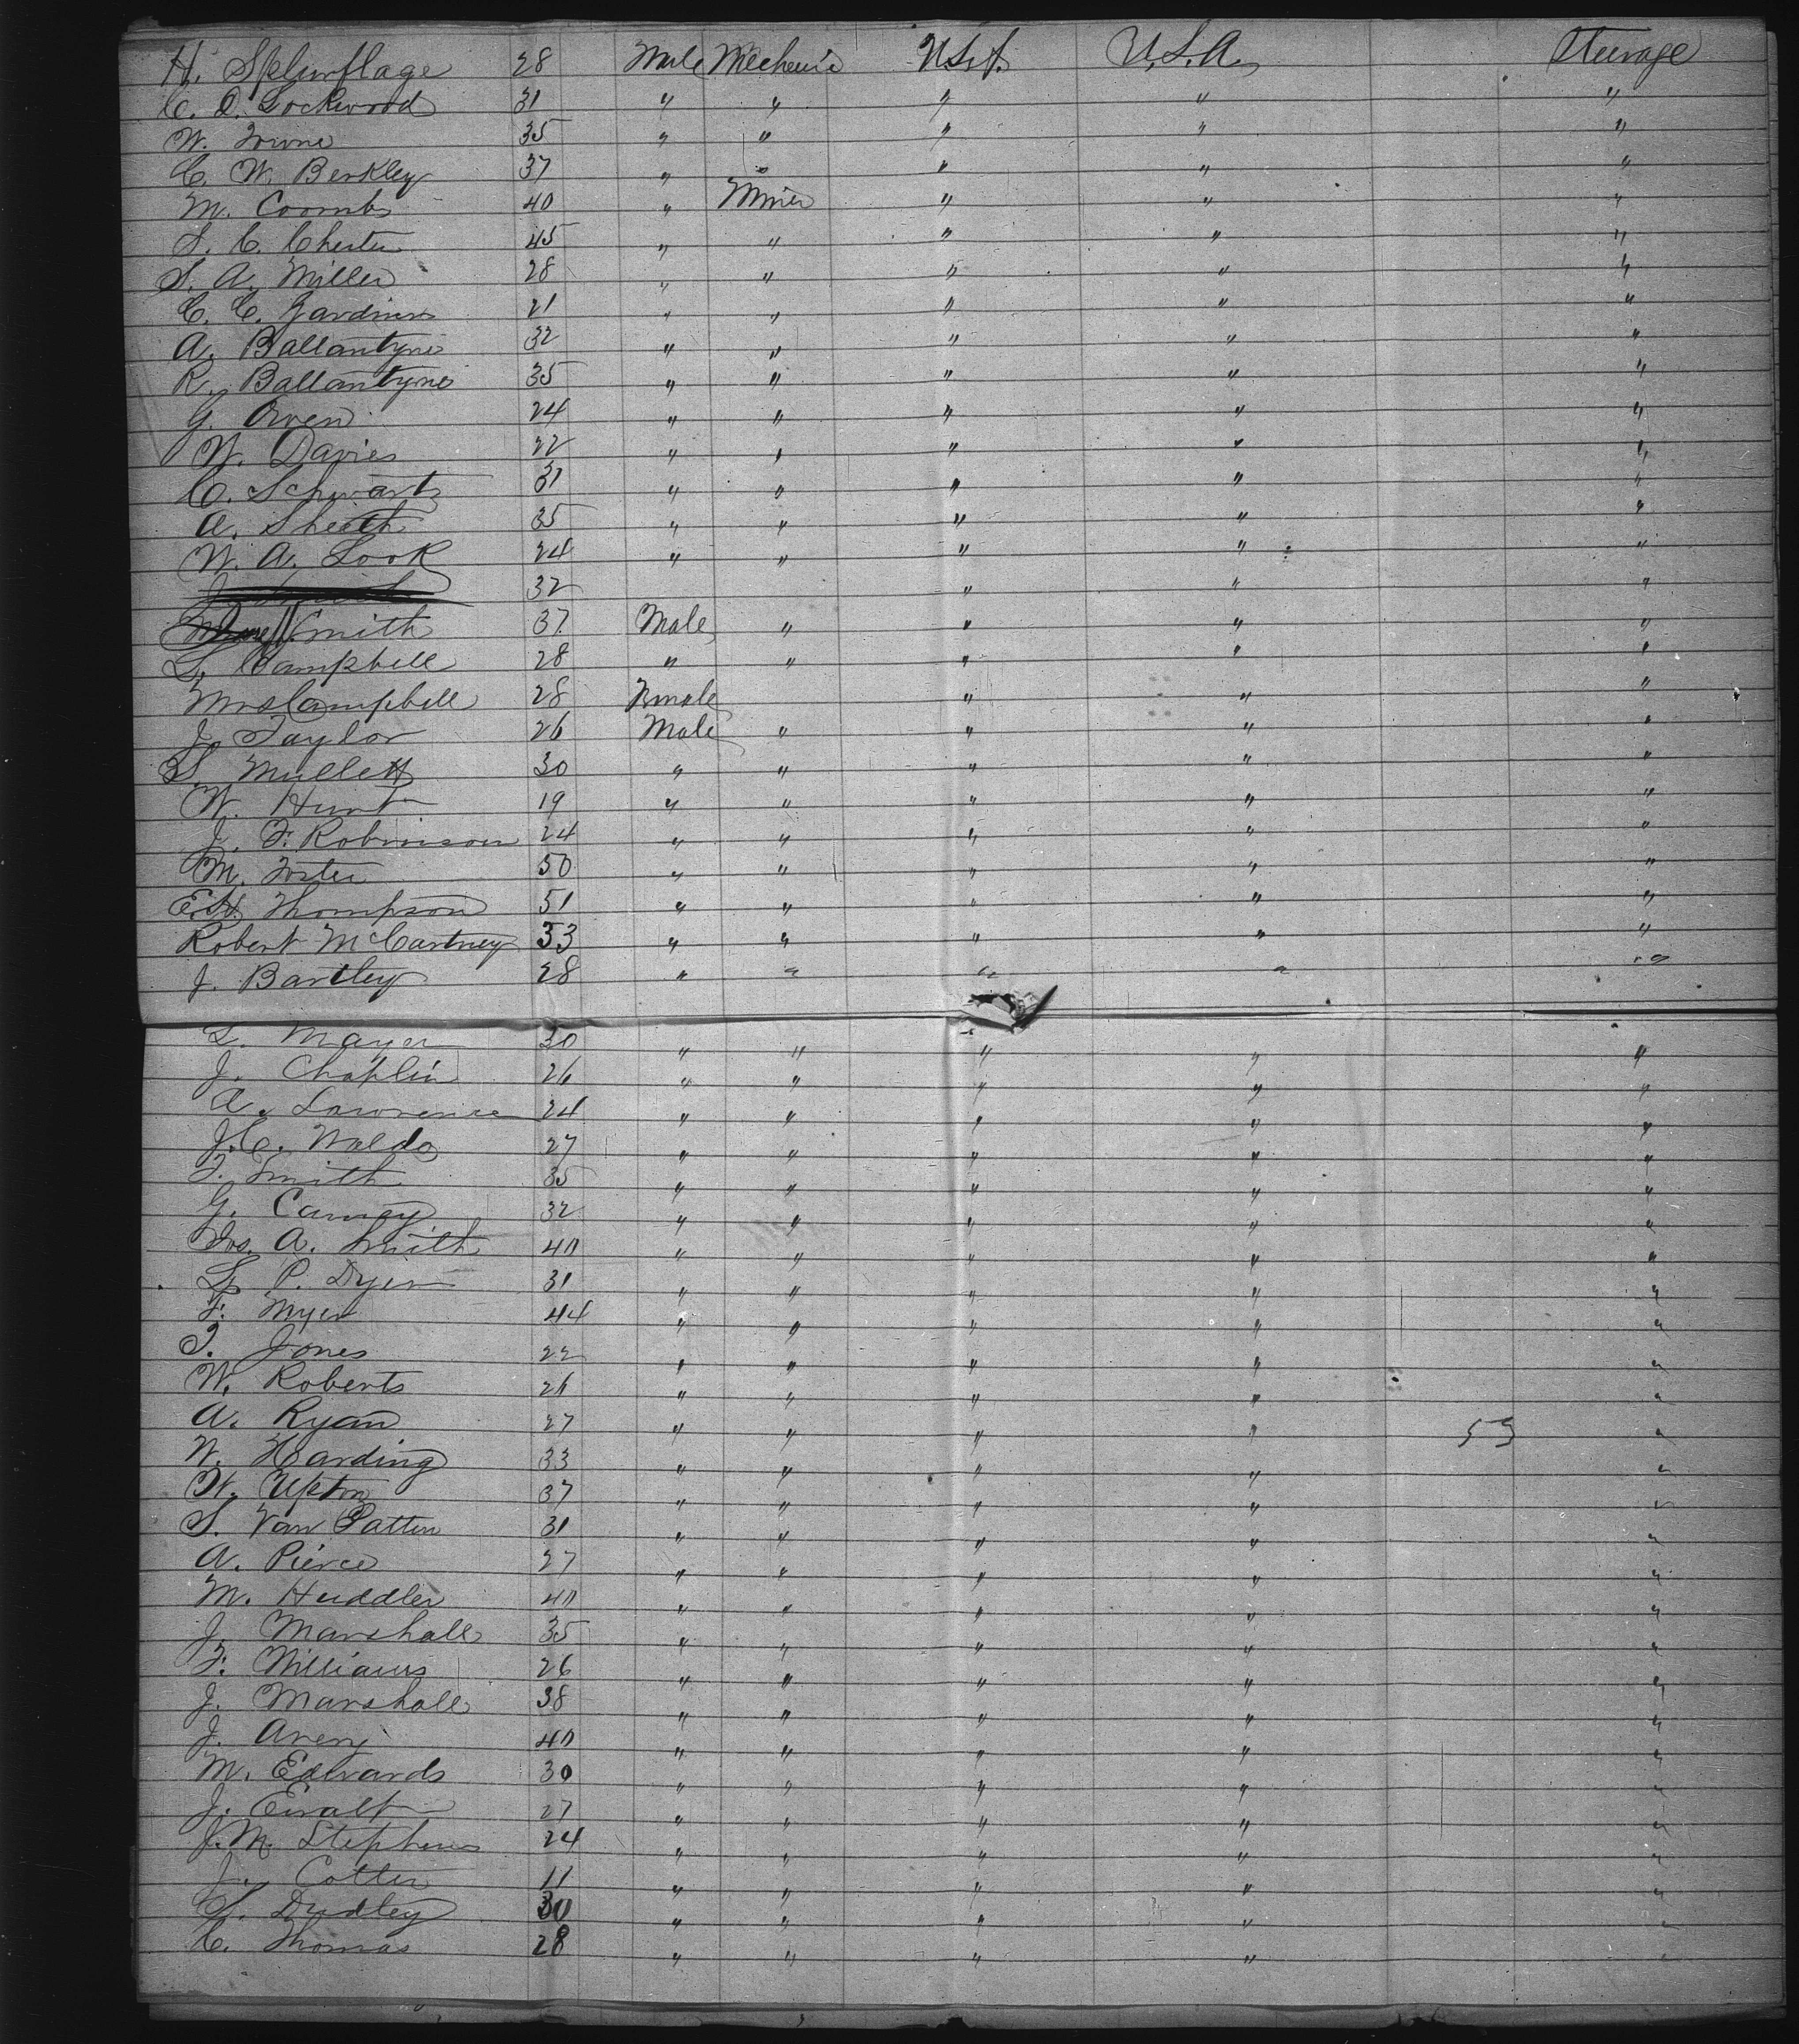 H. Splunflage 28 Male Mechanic U.S.A. U.S.A. Steerage
C. D. Lockwood 31 " " " " "
W. Irvine 35 " " " " "
C. W. Berkley 37 " " " " "
M. Coombs 40 " Miner " " "
S. C. Chester 45 " " " " "
S. A. Miller 28 " " " " "
C. C. Gardiner 21 " " " " "
A. Ballantyne 32 " " " " "
R. Ballantyne 35 " " " " "
G. Oven 24 " " " " "
W. Davies 22 " " " " "
C. Schwartz 31 " " " " "
A. Sheath 35 " " " " "
W. A. Look 24 " " " " "
32 " " "
Smith 37 Male " " " "
L. Campbell 28 " " " " "
Mrs Campbell 28 Female " " "
J. Taylor 26 Male " " " "
S. Mullett 30 " " " " "
W. Hunt 19 " " " " "
J. F. Robinson 24 " " " " "
M. Foster 50 " " " " "
E. H. Thompson 51 " " " " "
Robert McCartney 53 " " " " "
J. Bartley 28 " " " " "
L. Mayer 30 " " " " "
J. Chaplin 26 " " " " "
A. Lawrence 24 " " " " "
J. C. Waldo 27 " " " " "
F. Smith 35 " " " " "
G. Carney 32 " " " " "
Jos. A. Smith 40 " " " " "
L. P. Dyer 31 " " " " "
F. Myer 44 " " " " "
T. Jones 22 " " " " "
W. Roberts 26 " " " " "
A. Ryan 27 " " " " 53 "
W. Harding 33 " " " " "
W. Upton 37 " " " " "
S. Van Patten 31 " " " " "
A. Pierce 27 " " " " "
M. Huddler 40 " " " " "
J. Marshall 35 " " " " "
F. Williams 26 " " " " "
J. Marshall 38 " " " " "
J. Avery 40 " " " " "
M. Edwards 30 " " " " "
J. Ewalt 27 " " " " "
J. M. Stephens 24 " " " " "
J. Cotter 11 " " " " "
S. Dudley 30 " " " " "
C. Thomas 28 " " " " "